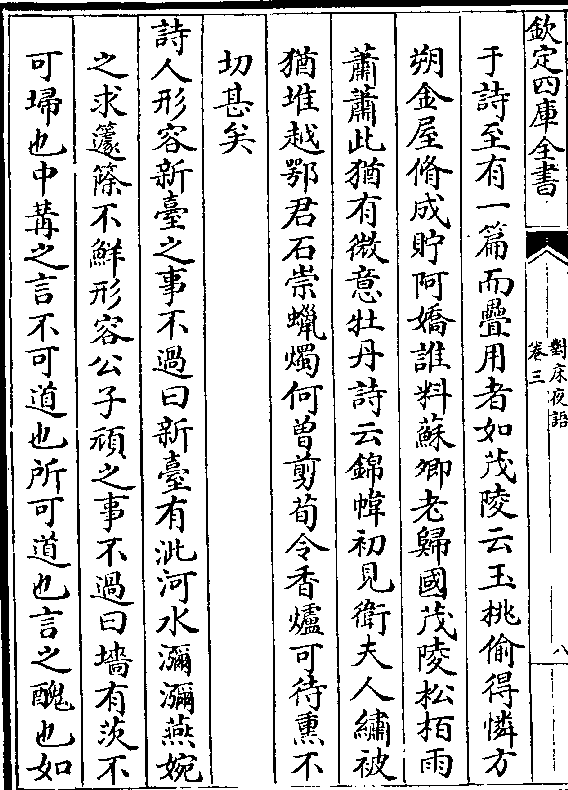 欽定四庫全書
對床夜語
卷三
八
于詩至有一篇而疊用者如茂陵云玉桃偷得憐方
朔金屋脩成貯阿嬌誰料蘇卿老歸國茂陵松栢雨
蕭蕭此猶有微意牡丹詩云錦幃初見衛夫人繡被
猶堆越鄂君石崇蠟燭何曽剪荀令香爐可待熏不
切甚矣
詩人形容新臺之事不過曰新臺有泚河水瀰瀰燕婉
之求籧篨不鮮形容公子頑之事不過曰墻有茨不
可埽也中冓之言不可道也所可道也言之醜也如